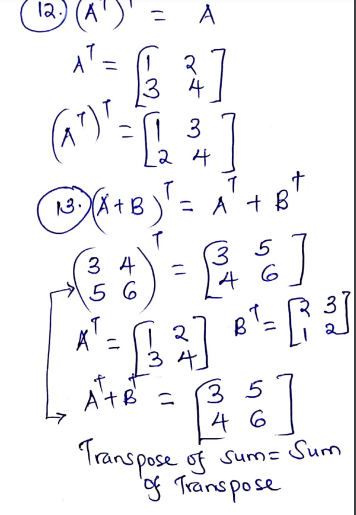 12.) (Aᵀ)ᵀ = A
Aᵀ = [1 2
3 4]
(Aᵀ)ᵀ = [1 3
2 4]
13.) (A+B)ᵀ = Aᵀ + Bᵀ
(3 4
5 6)ᵀ = [3 5
4 6]
Aᵀ = [1 2
3 4] Bᵀ = [2 3
1 2]
Aᵀ+Bᵀ = [3 5
4 6]
Transpose of sum = Sum
of Transpose